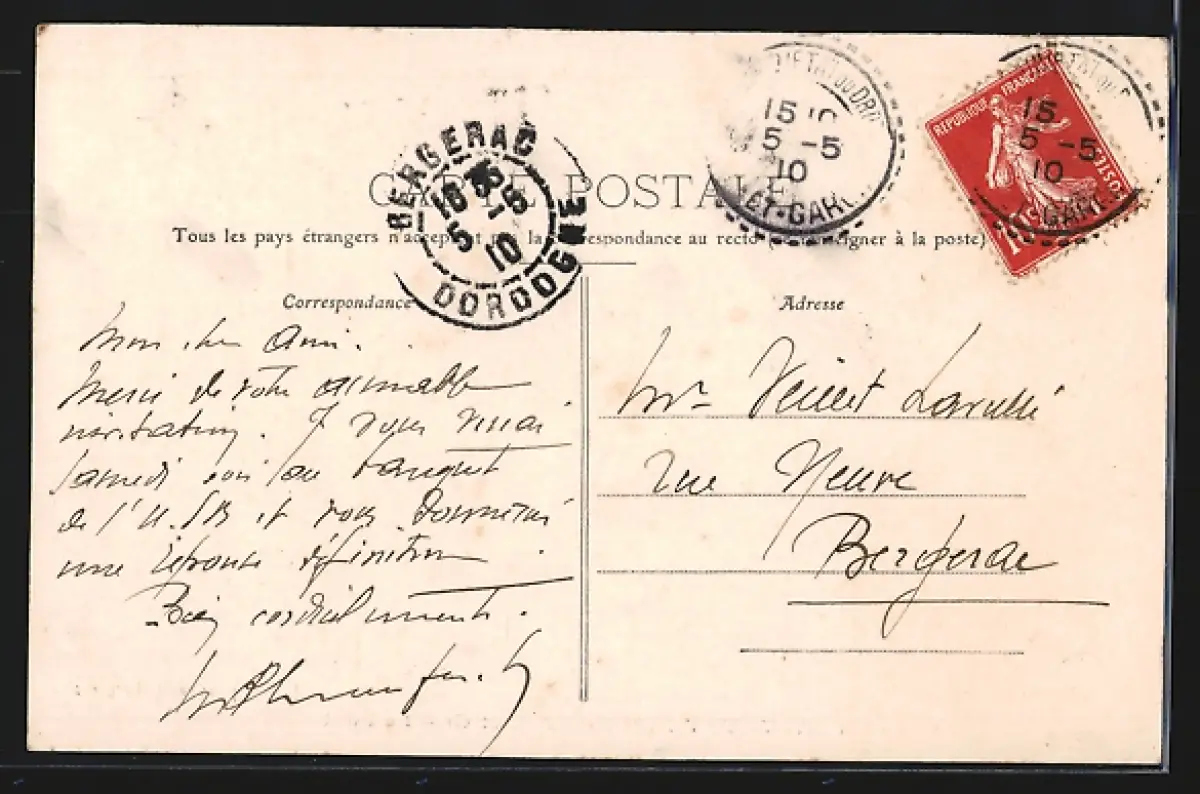 BERGERAC
DORDOGNE
5 -5
10
15
5 -5
10
ET-GAR
15
5 -5
10
REPUBLIQUE FRANÇAISE
POSTES
10c
CARTE POSTALE
Tous les pays étrangers n'acceptent pas la correspondance au recto (se renseigner à la poste)
Correspondance
Mon cher Ami.
Merci de votre aimable
invitation. Je vous verrai
samedi soir au banquet
de l'U.SB et vous donnerai
une réponse définitive.
Bien cordialement.
Adresse
Mr Laville
rue Neuve
Bergerac